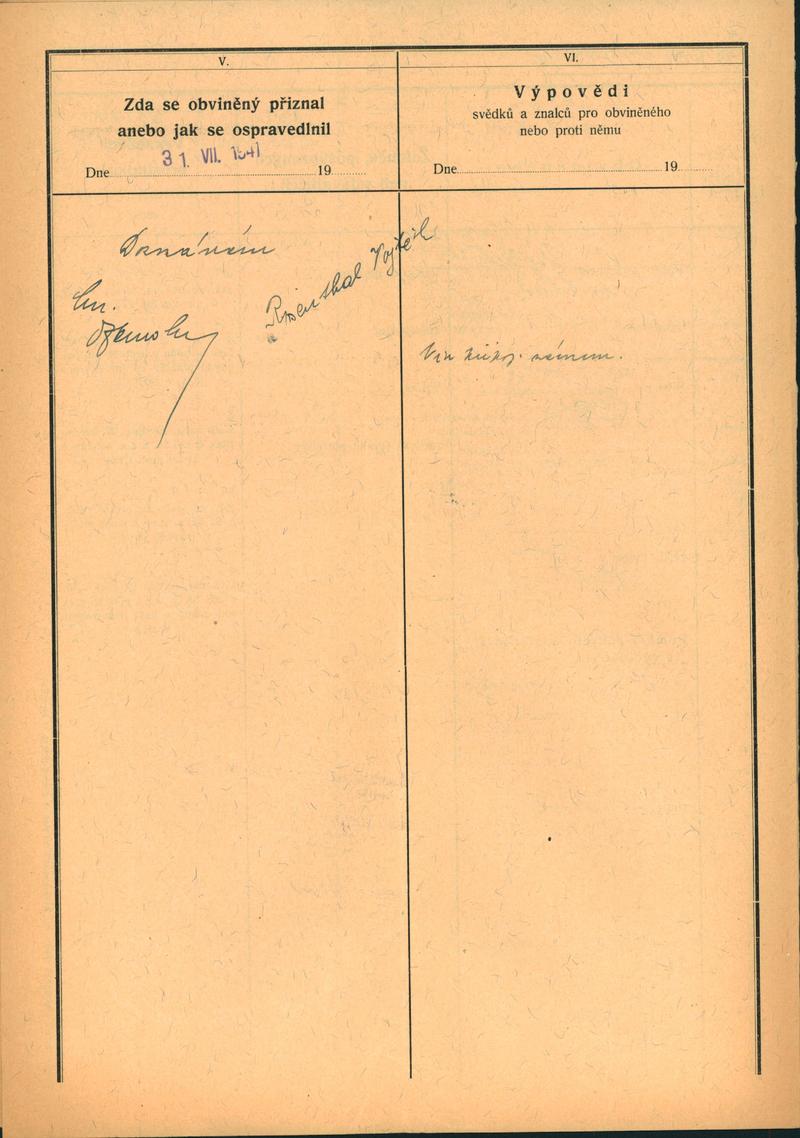 V.
Zda se obviněný přiznal
anebo jak se ospravedlnil
Dne 31. VII. 1941 19
Doznávám
Rosenthal Vojtěch
VI.
Výpovědi
svědků a znalců pro obviněného
nebo proti němu
Dne 19